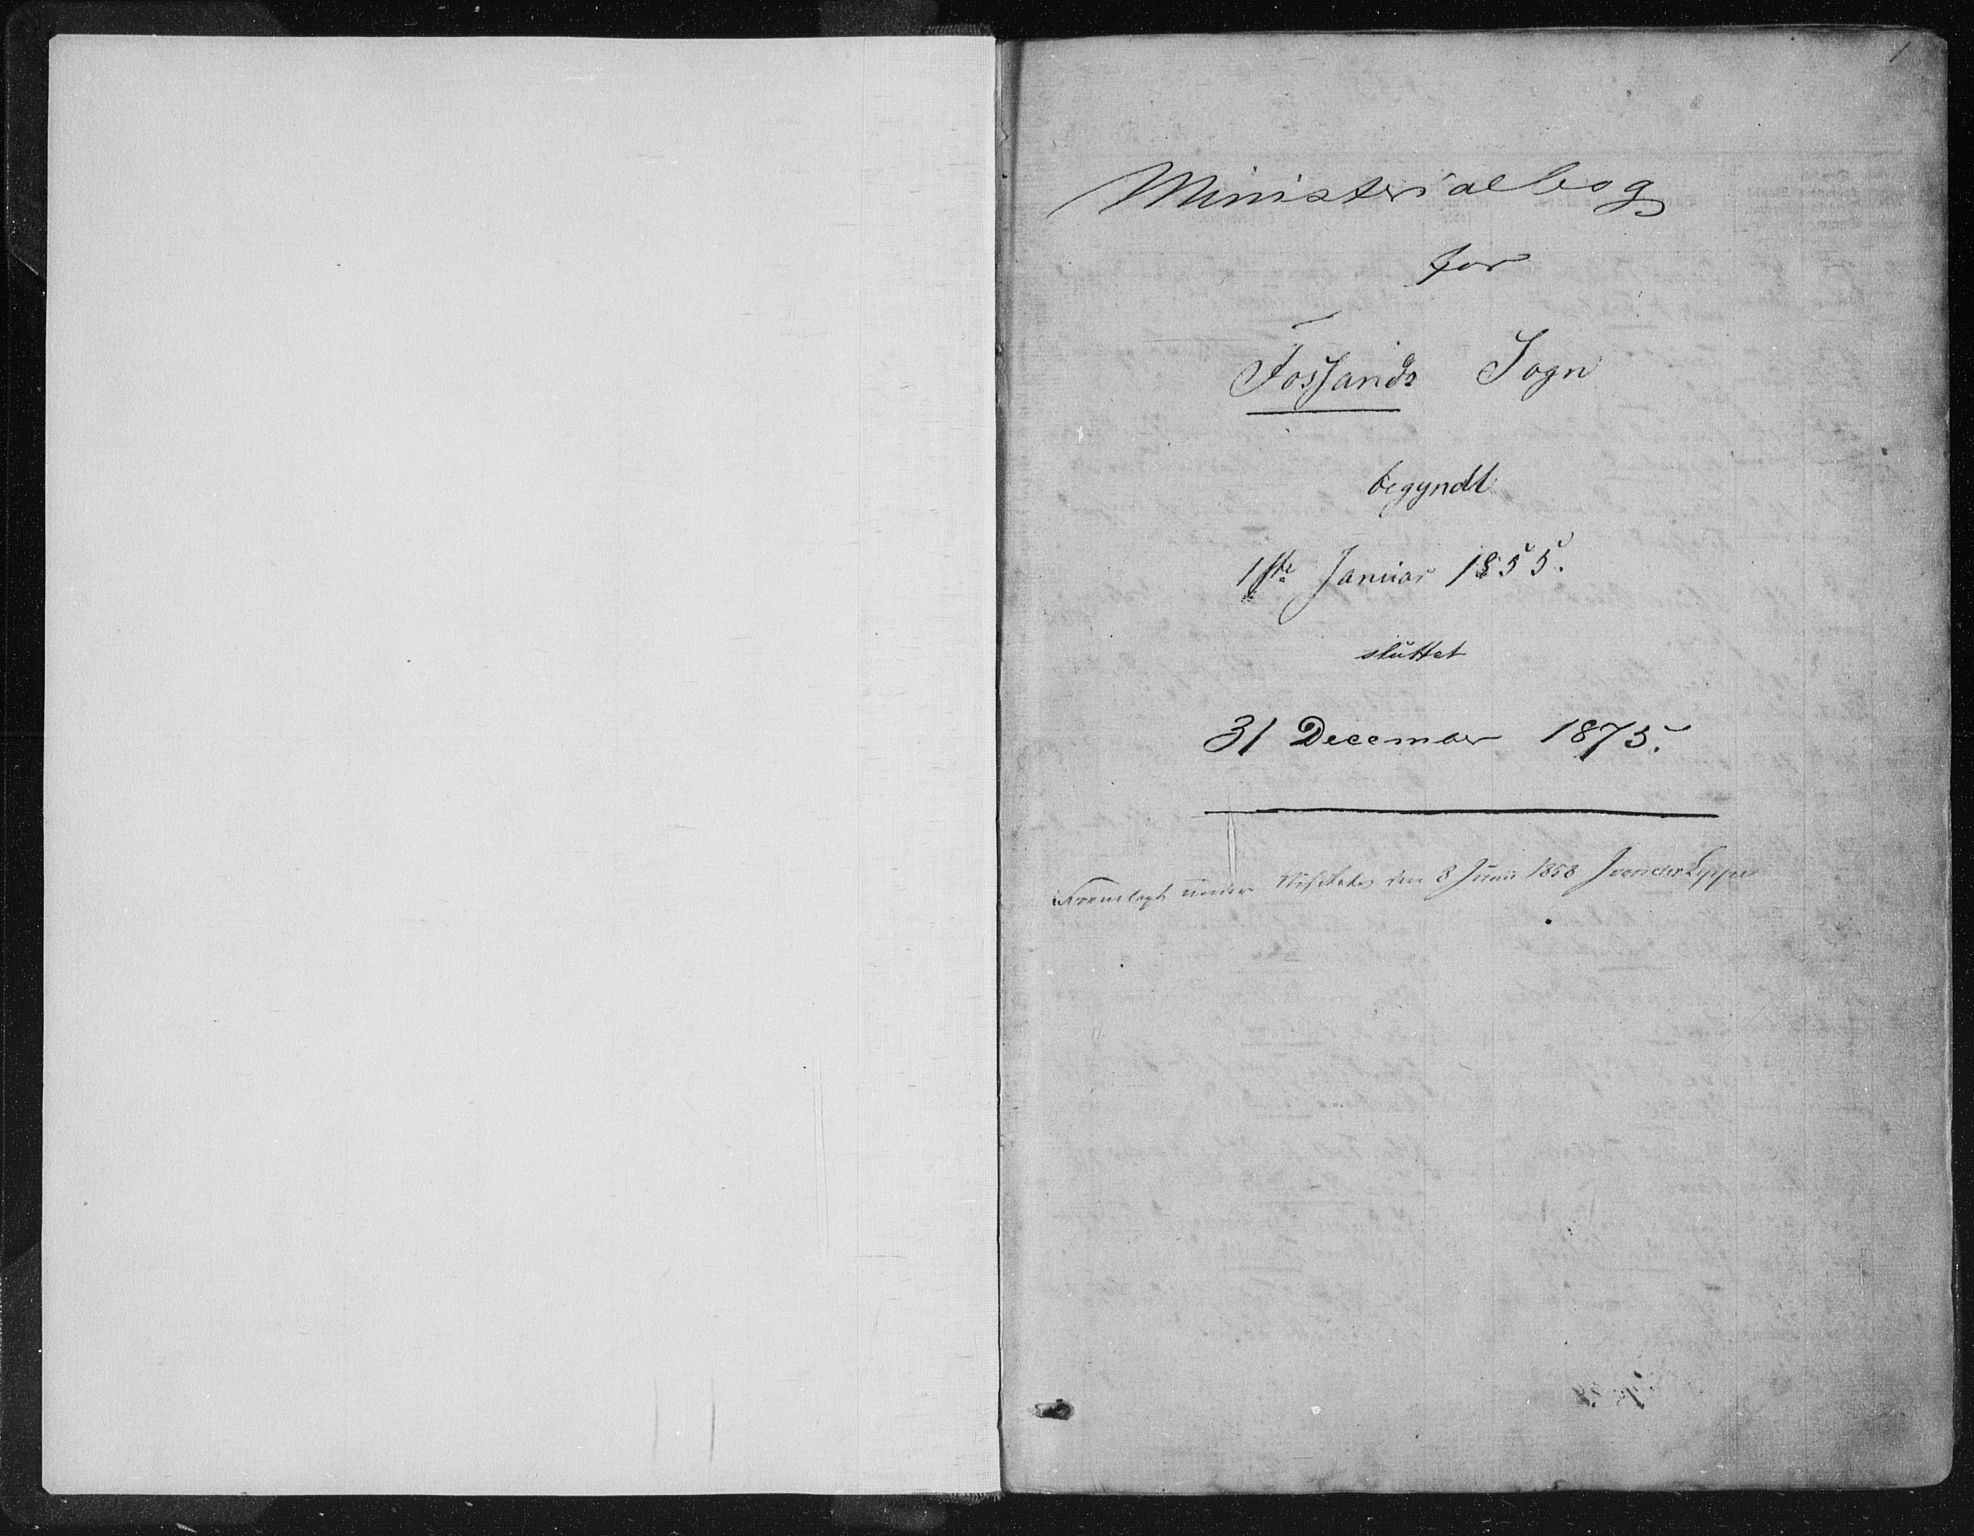 1
Ministerialbog
for
Fossands Sogn
begyndt
1ste Januar 1855.
sluttet
31 December 1875.
Fremlagt under Visitats den 8 Juni 1858